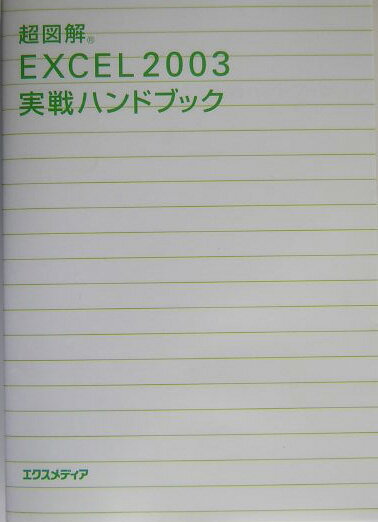 超図解®
EXCEL2003
実戦ハンドブック
エクスメディア